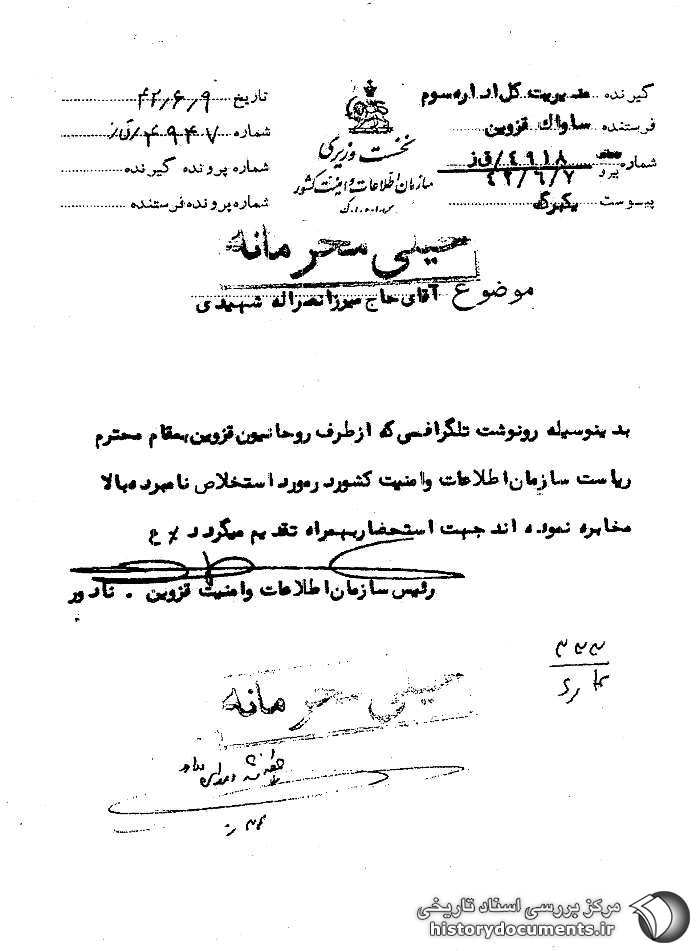 گیرنده مدیریت کل اداره سوم
فرستنده ساواک قزوین
شماره ۴۹۱۸/ق ز
پیرو ۴۲/۶/۷
پیوست یکبرگ
نخست وزیری
سازمان اطلاعات و امنیت کشور
س.ا.و.ا.ک
تاریخ ۴۲/۶/۹
شماره ۴۹۴۷/ق ز
شماره پرونده گیرنده
شماره پرونده فرستنده
خیلی محرمانه
موضوع آقای حاج میرزا نصراله شهیدی
بدینوسیله رونوشت تلگرافی که از طرف روحانیون قزوین بمقام محترم
ریاست سازمان اطلاعات و امنیت کشور در مورد استخلاص نامبرده بالا
مخابره نموده اند جهت استحضار بهمراه تقدیم میگردد ٪ ع
رئیس سازمان اطلاعات و امنیت قزوین . نادور
۳۳۳
خیلی محرمانه
مرکز بررسی اسناد تاریخی
historydocuments.ir